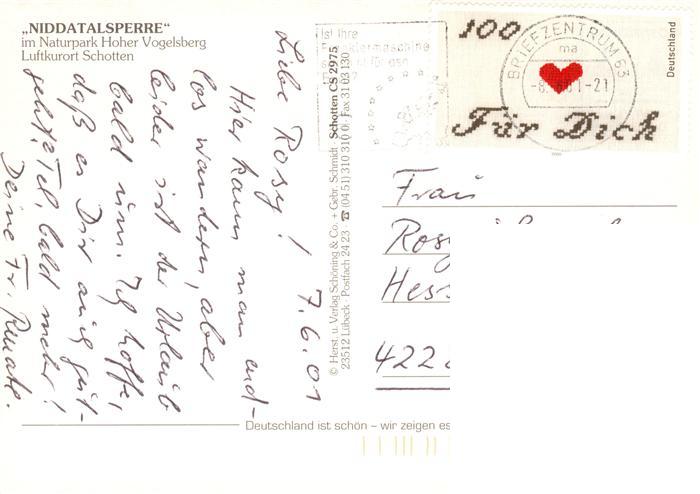 „NIDDATALSPERRE“
im Naturpark Hoher Vogelsberg
Luftkurort Schotten
7.6.01
Liebe Rosy!
Hier kann man end-
los wandern, aber
leider ist der Urlaub
bald um. Ich hoffe,
daß es Dir auch gut-
geht, Tel. bald mehr!
Deine Fr. Renate.
© Herst. u. Verlag Schöning & Co. + Gebr. Schmidt · Schotten CS 2975
23512 Lübeck · Postfach 24 23 · ☎ (04 51) 310 310 · Fax 31 03 130
Ist Ihre
100
Für Dich
Deutschland
BRIEFZENTRUM 63
ma
-21
Frau
Rosy
Hess
422
Deutschland ist schön – wir zeigen es